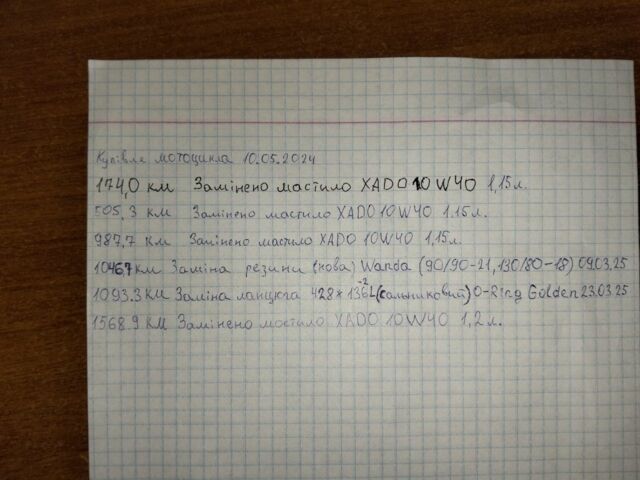 Купівля мотоцикла 10.05.2024
174,0 км Замінено мастило XADO 10W40 1,15л.
505,3 км Замінено мастило XADO 10W40 1.15л.
987,7 км Замінено мастило XADO 10W40 1,15л.
1046,7км Заміна резини (нова) Wanda (90/90-21, 130/80-18) 09.03.25
1093.3 км Заміна ланцюга 428*136L-2 (сальниковий) O-Ring Golden 23.03.25
1568.9 км Замінено мастило XADO 10W40 1,2л.